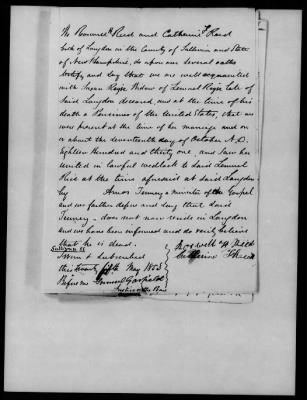 We Roswell H Reed and Catharine Reed
both of Langdon in the County of Sullivan and State
of New Hampshire, do upon our several oaths
testify and say that we are well acquainted
with Susan Widow of Lemuel late of
Said Langdon deceased, and at the time of his
death a Pensioner of the United States, that we
were present at the time of her marriage and on
or about the seventeenth day of October A.D.
Eighteen Hundred and thirty one and saw her
united in lawful wedlock to said Lemuel
at the time aforesaid at said Langdon
by Amos a minister of the Gospel
and we further depose and say that said
does not now reside in Langdon
and we have been informed and do verily believe
that he is dead.
Roswell H Reed
Sullivan SS
Sworn & subscribed
this twenty fifth May 1853
Before me Garfield
Justice of the Peace